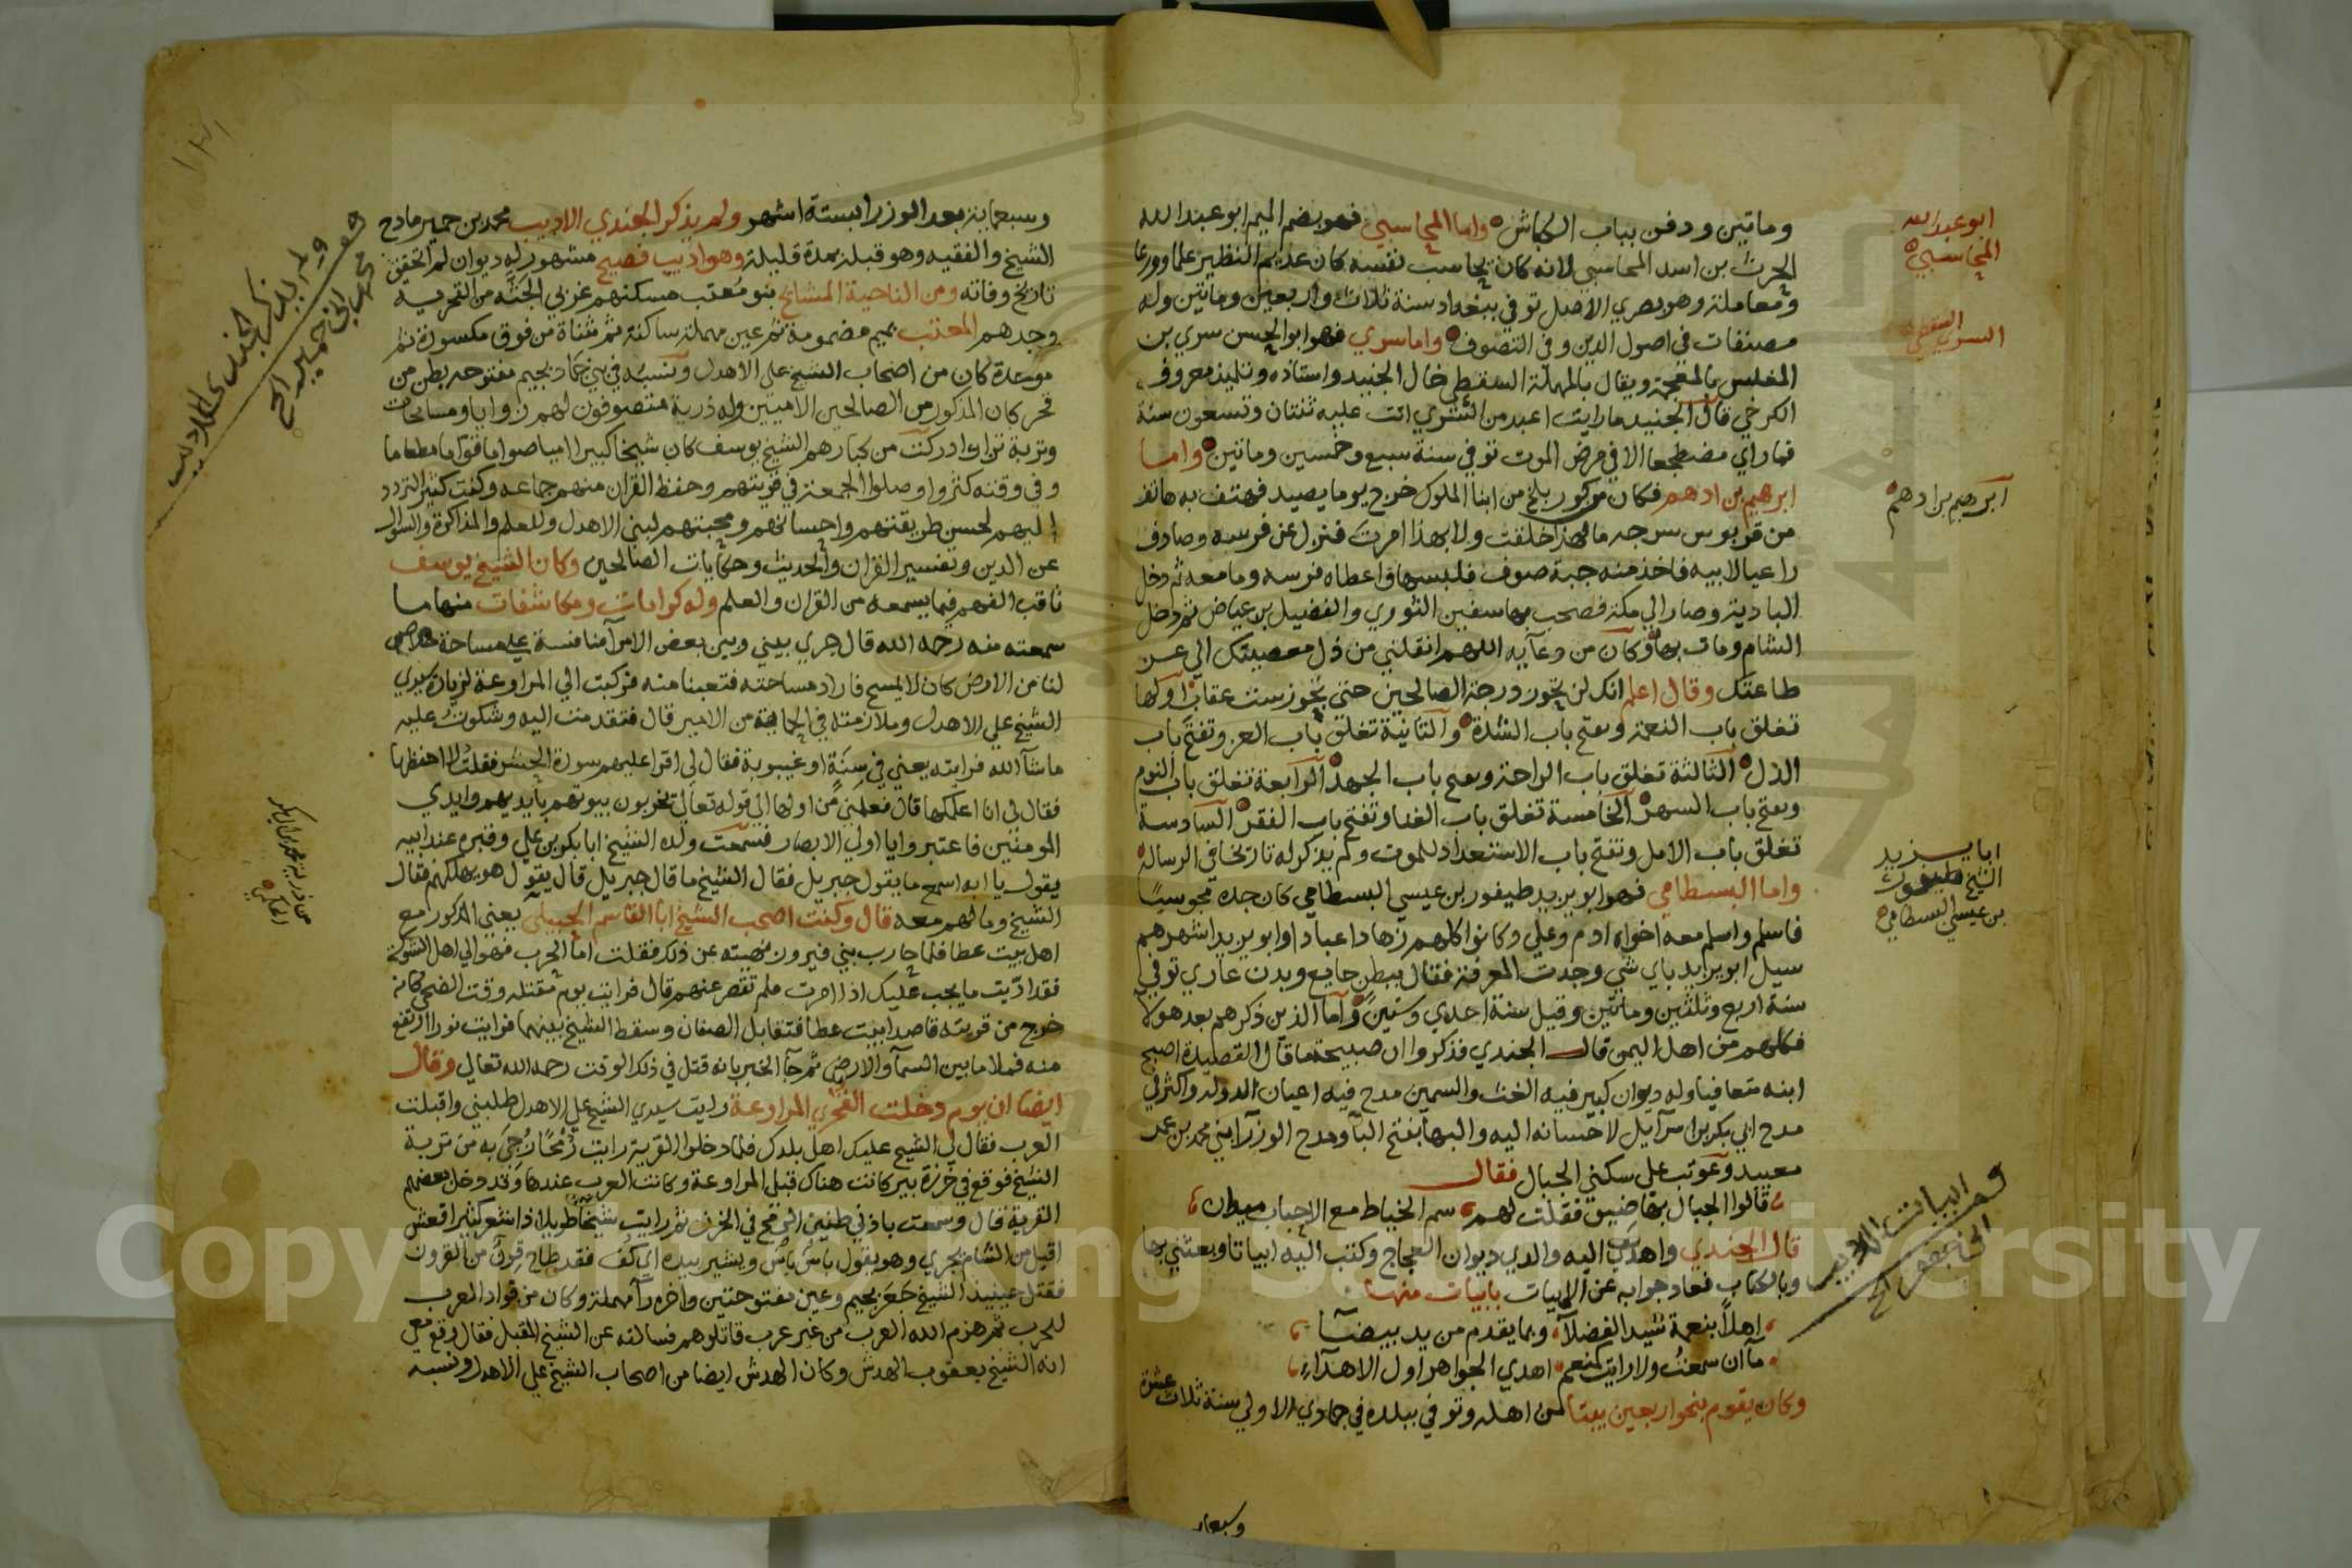 ومائتين ودفن بباب الكباش واما المحاسبي فهو بضم الميم ابو عبد الله
الحرث بن اسد المحاسبي لانه كان يحاسب نفسه كان عديم النظير علما وورعا
ومعاملة وهو بصري الاصل توفي ببغداد سنة ثلاث واربعين ومائتين وله
مصنفات في اصول الدين وفي التصوف واما سري فهو ابو الحسن سري بن
المغلس بالمعجمة ويقال بالمهملة السقطي خال الجنيد واستاذه وتلميذ معروف
الكرخي قال الجنيد ما رايت اعبد من السري اتت عليه ثنتان وتسعون سنة
فما راي مضطجعا الا في مرض الموت توفي سنة سبع وخمسين ومائتين واما
ابرهيم بن ادهم فكان من كور بلخ من ابنا الملوك خرج يوما يصيد فهتف به هاتف
من قربوس سرجه ما لهذا خلقت ولا بهذا امرت فنزل عن فرسه وصادف
راعيا لابيه فاخذ منه جبة صوف فلبسها واعطاه فرسه وما معه ثم دخل
البادية وصار الي مكة فصحب بها سفين الثوري والفضيل بن عياض ثم دخل
الشام ومات بها وكان من دعايه اللهم انقلني من ذل معصيتك الي عز
طاعتك وقال اعلم انك لن تجوز درجة الصالحين حتى تجوز ست عقاب اولها
تغلق باب النعمة وتفتح باب الشدة والثانية تغلق باب العز وتفتح باب
الذل الثالثة تغلق باب الراحة وتفتح باب الجهد الرابعة تغلق باب النوم
وتفتح باب السهر الخامسة تغلق باب الغنا وتفتح باب الفقر السادسة
تغلق باب الامل وتفتح باب الاستعداد للموت ولم يذكر له تاريخا في الرسالة
واما البسطامي فهو ابو يزيد طيفور بن عيسي البسطامي كان جده مجوسيا
فاسلم واسلم معه اخواه ادم وعلي وكانوا كلهم زهادا عبادا وابو يزيد اشهرهم
سيل ابو يزيد باي شي وجدت المعرفة فقال ببطن جايع وبدن عاري توفي
سنة اربع وثلثين ومائتين وقيل سنة احدي وستين واما الذين ذكرهم بعد هولا
فكلهم من اهل اليمن قال الجندي فذكروا ان صبيحة ما قال القصيدة اصبح
ابنه متعافيا وله ديوان كبير فيه الغث والسمين مدح فيه اعيان الدولة واكثر في
مدح ابي بكر بن اسرآيل لاحسانه اليه والبها بفتح البا ومدح الوزرا بني محمد بن عمر
معيبد وعوتب على سكني الجبال فقال
قالوا الجبال بها ضيق فقلت لهم سم الخياط مع الاحباب ميدان
قال الجندي واهديت اليه والدي ديوان العجاج وكتب اليه ابياتا وبعثني بها
وبالكتاب فعاد جوابه عن الابيات بابيات منها
اهلا بنعمة سيد الفضلا وبما يقدم من يد بيضآ
ما ان سمعت ولا رايت كنعم اهدي الجواهر اول الاهدآء
وكان يقوم بنحو اربعين بيتا من اهله وتوفي ببلده في جمادي الاولي سنة ثلاث عشرة
وسبعمايه
ابو عبد الله
المحاسبي
السري السقطي
ابرهيم بن ادهم
ابا يزيد
الشيخ طيفور
بن عيسي البسطامي
وسبعماية بعد الوزرا بستة اشهر ولم يذكر الجندي الاديب محمد بن حمير مادح
الشيخ والفقيه وهو قبله بمدة قليلة وهو اديب فصيح مشهور له ديوان لم اتحقق
تاريخ وفاته ومن الناحية المشايخ بنو معتب مسكنهم غربي الجثه من القحرية
وجدهم المعتب بميم مضمومة ثم عين مهملة ساكنة ثم مثناة من فوق مكسورة ثم
موحدة كان من اصحاب الشيخ علي الاهدل ونسبه في بني حماد بجيم مفتوحه بطن من
قحر كان المذكور من الصالحين الاميين وله ذرية متصوفون لهم زوايا ومسامحات
وتربة تزار ادركت من كبارهم الشيخ يوسف كان شيخا كبيرا اميا صواما قواما مطعاما
وفي وقته كثروا وصلوا الجمعة في قريتهم وحفظ القران منهم جماعه وكنت كثير التردد
اليهم لحسن طريقتهم واحسانهم ومحبتهم لبني الاهدل وللعلم والمذاكرة والسوال
عن الدين وتفسير القران والحديث وحكايات الصالحين وكان الشيخ يوسف
ثاقب الفهم فيما يسمعه من القران والعلم وله كرامات ومكاشفات منها ما
سمعته منه رحمه الله قال جري بيني وبين بعض الامرآ منافسة علي مساحة
لنا من الارض كان لا يمسح فاراد مساحته فتعبنا منه فركبت الي المراوعة لزيارة سيدي
الشيخ علي الاهدل وملازمته في الحماية من الامير قال فتقدمت اليه وشكوت عليه
ما شآ الله فرايته يعني في سنة او غيبوبة فقال لي اقرا عليهم سورة الحشر فقلت لا احفظها
فقال لي انا اعلمكها قال فعلمني من اولها الي قوله تعالي يخربون بيوتهم بايديهم وايدي
المومنين فاعتبروا يا اولي الابصار فسمعت ولده الشيخ ابا بكر بن علي وقبره عند ابيه
يقول يا ابه اسمع ما يقول جبريل فقال الشيخ ما قال جبريل قال يقول هو يهلكهم فقال
الشيخ وما لهم معه قال وكنت اصحب الشيخ ابا القاسم الجبيلي يعني المذكور مع
اهل بيت عطا فلما حارب بني فيرون نهيته عن ذلك فقلت اما الحرب فهو الي اهل الشوكة
فقد اديت ما يجب عليك اذا امرت فلم تقصر عنهم قال فرايت يوم مقتله وقت الضحى كانه
خرج من قريته قاصدا بيت عطا فتقابل الصفان وسقط الشيخ بينهما فرايت نورا ارتفع
منه فملا ما بين السمآ والارض ثم جآ الخبر بانه قتل في ذلك الوقت رحمه الله تعالي وقال
ايضا ان يوم دخلت القحري المراوعة رايت سيدي الشيخ علي الاهدل طلبني واقبلت
العرب فقال لي الشيخ عليك اهل بلدك فلما دخلوا القرية رايت رمحا رجي به من تربة
الشيخ فوقع في خرزة بير كانت هناك قبل المراوعة وكانت العرب عندها وقد دخل بعضهم
القرية قال وسمعت باذني طنين الرمح في الخرز ثم رايت شيخا طويلا ذا شعر كثير اقعش
اقبل من الشام يجري وهو يقول باس باس ويشير بيده اي كف فقد طاح قرن من القرون
فقتل حينيذ الشيخ جعر بجيم وعين مفتوحتين واخره رآ مهملة وكان من قواد العرب
للحرب ثم هزم الله العرب من غير عرب قاتلوهم فسالته عن الشيخ المقبل فقال وقع معي
انه الشيخ يعقوب الهدش وكان الهدش ايضا من اصحاب الشيخ علي الاهدل ونسبه
ولم يذكر الجندي الاديب
Copyright © King Saud University